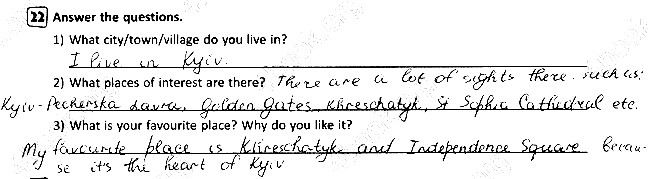 22 Answer the questions.
1) What city/town/village do you live in?
I live in Kyiv.
2) What places of interest are there? There are a lot of sights there such as:
Kyiv-Pecherska Lavra, Golden Gates, Khreschatyk, St Sophia Cathedral etc.
3) What is your favourite place? Why do you like it?
My favourite place is Khreschatyk and Independence Square becau-
se it's the heart of Kyiv